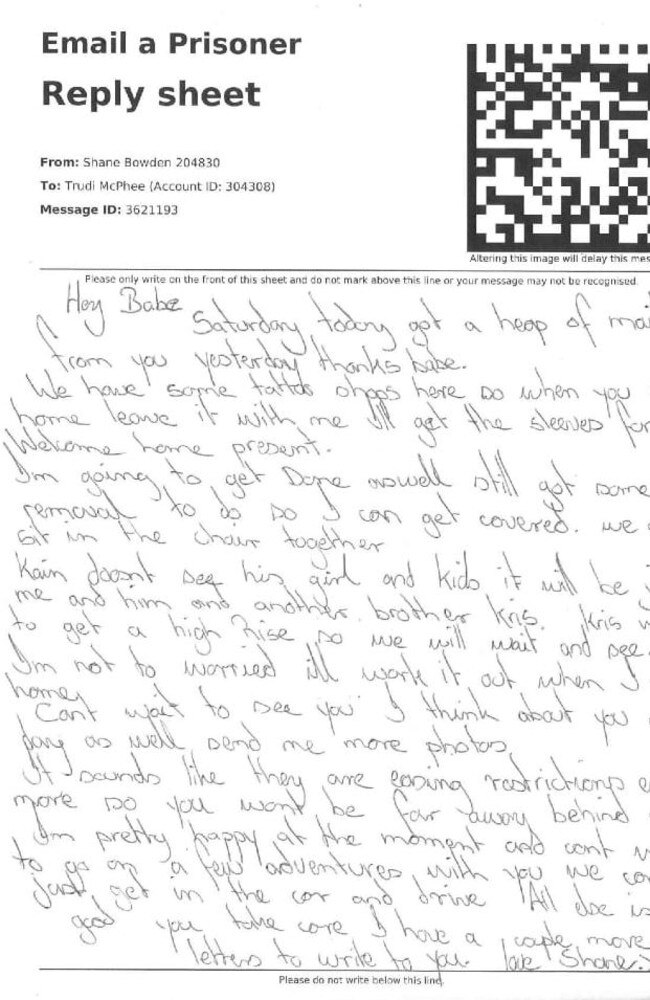 Email a Prisoner
Reply sheet
From: Shane Bowden 204830
To: Trudi McPhee (Account ID: 304308)
Message ID: 3621193
Altering this image will delay this mes
Please only write on the front of this sheet and do not mark above this line or your message may not be recognised.
Hey Babe
Saturday today got a heap of mai
from you yesterday thanks babe.
We have some tattoo shops here so when you
home leave it with me ill get the sleeves for
Welcome home present.
I'm going to get Done aswell still got some
removal to do so I can get covered. we
sit in the chair together
Kain doesnt see his girl and kids it will be
me and him and another brother Kris. Kris
to get a high rise so we will wait and see.
I'm not to worried ill work it out when I
home,
Cant wait to see you I think about you
day as well send me more photos
It sounds like they are easing restrictions
more so you wont be far away behind
I'm pretty happy at the moment and cant
to go on a few adventures with you we can
just get in the car and drive All else is
good you take care I have a couple more
letters to write to you. love Shane.
Please do not write below this line